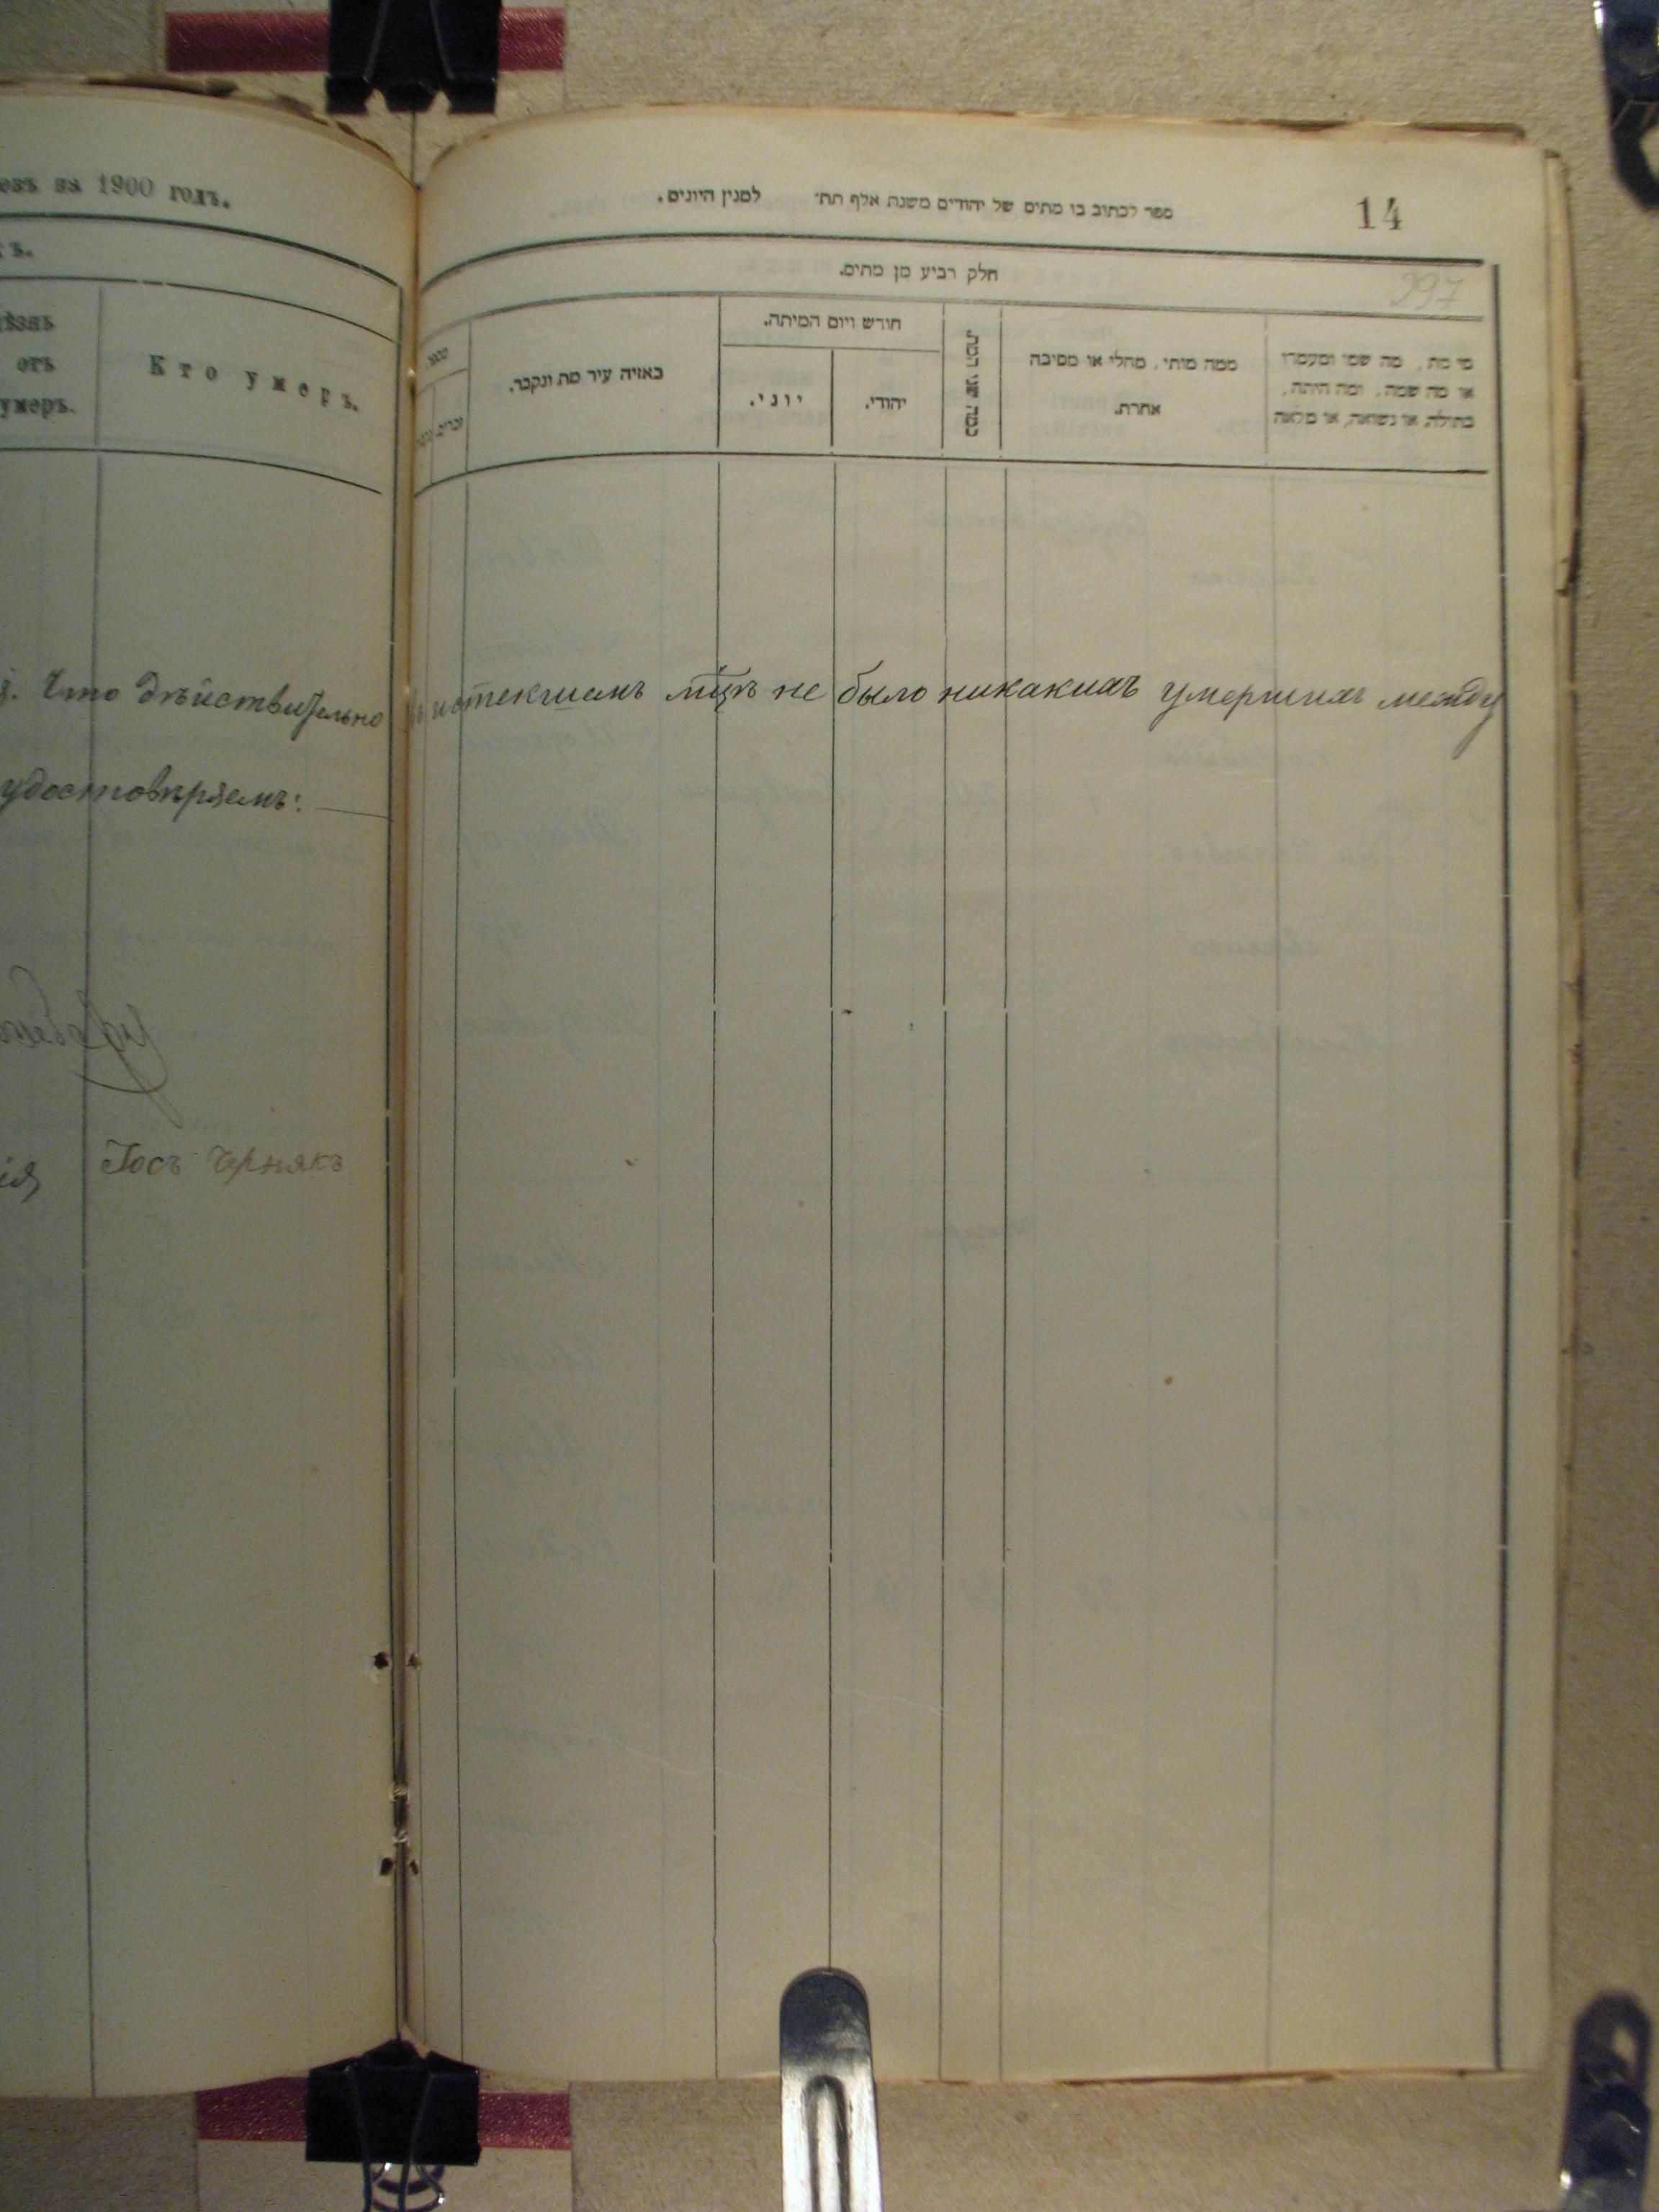 за 1900 годъ.
отъ
умеръ.
Кто умеръ.
14
297
ספר לכתוב בו מתים של יהודים משנת אלף תת׳ למנין היונים.
חלק רביע מן מתים.
מי מת, מה שמו ומעמדו
או מה שמה, ומה היתה,
בתולה, או נשואה, או מלאה
ממה מותו, מחלי או מסיבה
אחרת.
כמה שני המת.
חודש ויום המיתה.
יהודי.
יוני.
באזיה עיר מת ונקבר.
Что дѣйствительно въ истекшемъ м-цѣ не было никакихъ умершихъ между
удостовѣряемъ:
Іосъ Чернякъ